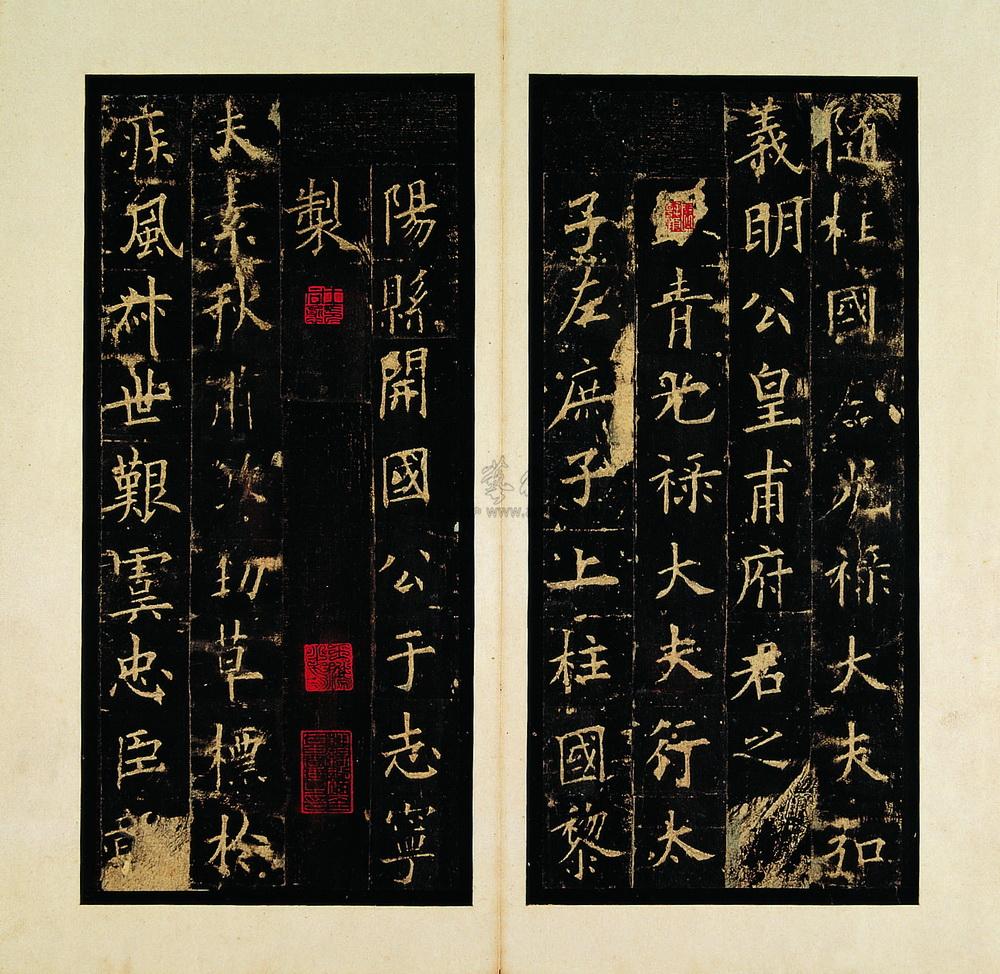 隨柱國光祿大夫弘
義明公皇甫府君之
青光祿大夫行太
子左庶子上柱國黎
陽縣開國公于志寧
製
夫素秋肅勁草標於
疾風叔世艱虞忠臣